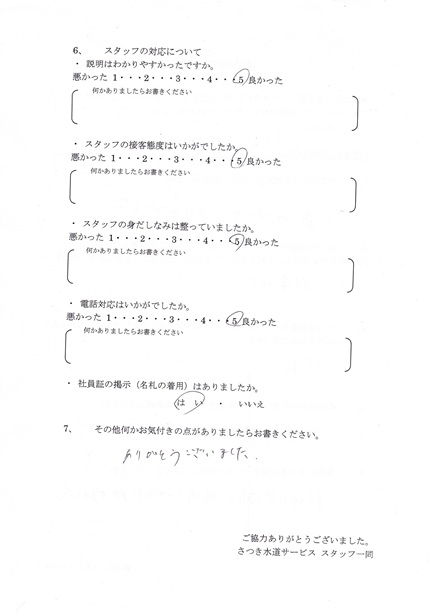 6、 スタッフの対応について
・ 説明はわかりやすかったですか。
悪かった 1・・・2・・・3・・・4・・・5 良かった
何かありましたらお書きください
・ スタッフの接客態度はいかがでしたか。
悪かった 1・・・2・・・3・・・4・・・5 良かった
何かありましたらお書きください
・ スタッフの身だしなみは整っていましたか。
悪かった 1・・・2・・・3・・・4・・・5 良かった
何かありましたらお書きください
・ 電話対応はいかがでしたか。
悪かった 1・・・2・・・3・・・4・・・5 良かった
何かありましたらお書きください
・ 社員証の掲示（名札の着用）はありましたか。
はい ・ いいえ
7、 その他何かお気付きの点がありましたらお書きください。
ありがとうございました。
ご協力ありがとうございました。
さつき水道サービス スタッフ一同